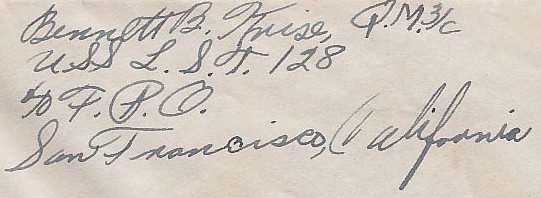 Bennett B. Krise, P.M. 3/c
USS L. S. T. 128
c/o F. P. O.
San Francisco, California